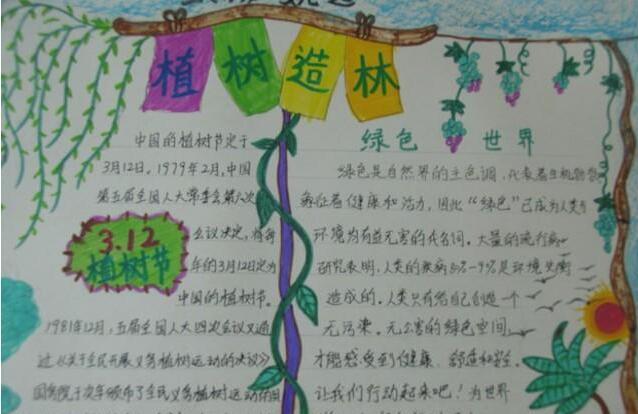 植树造林
中国的植树节定于
3月12日。1979年2月,中国
第五届全国人大常委会第六次
会议决定,将每
年的3月12日定为
中国的植树节。
3.12
植树节
1981年12月,五届全国人大四次会议又通
过《关于全民开展义务植树运动的决议》
国务院于次年颁布了全民义务植树运动的
绿色 世界
绿色是自然界的主色调,代表着生机勃勃
象征着健康和活力,因此"绿色"已成为人类与
环境为有益无害的代名词。大量的流行病
研究表明,人类的疾病
是环境失衡
造成的。人类只有给自己创造一个
无污染。无公害的绿色空间,
才能感受到健康、舒适和安全。
让我们行动起来吧!为世界